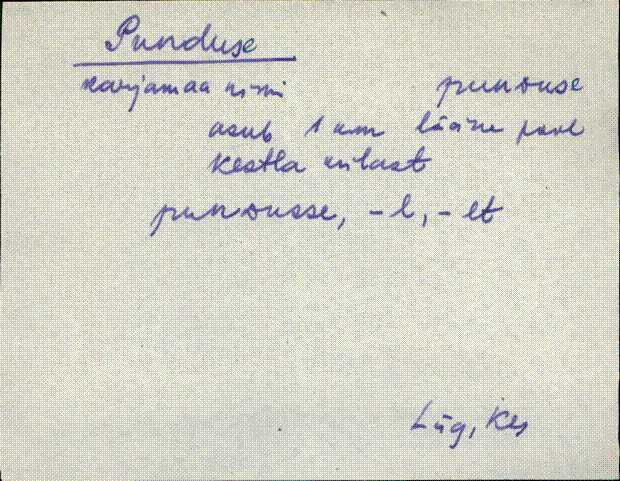 Punduse
karjamaa nimi punduse
asub 1 km lääne pool
Kestla külast
pundusse, -l, -lt
Lüg, Kes